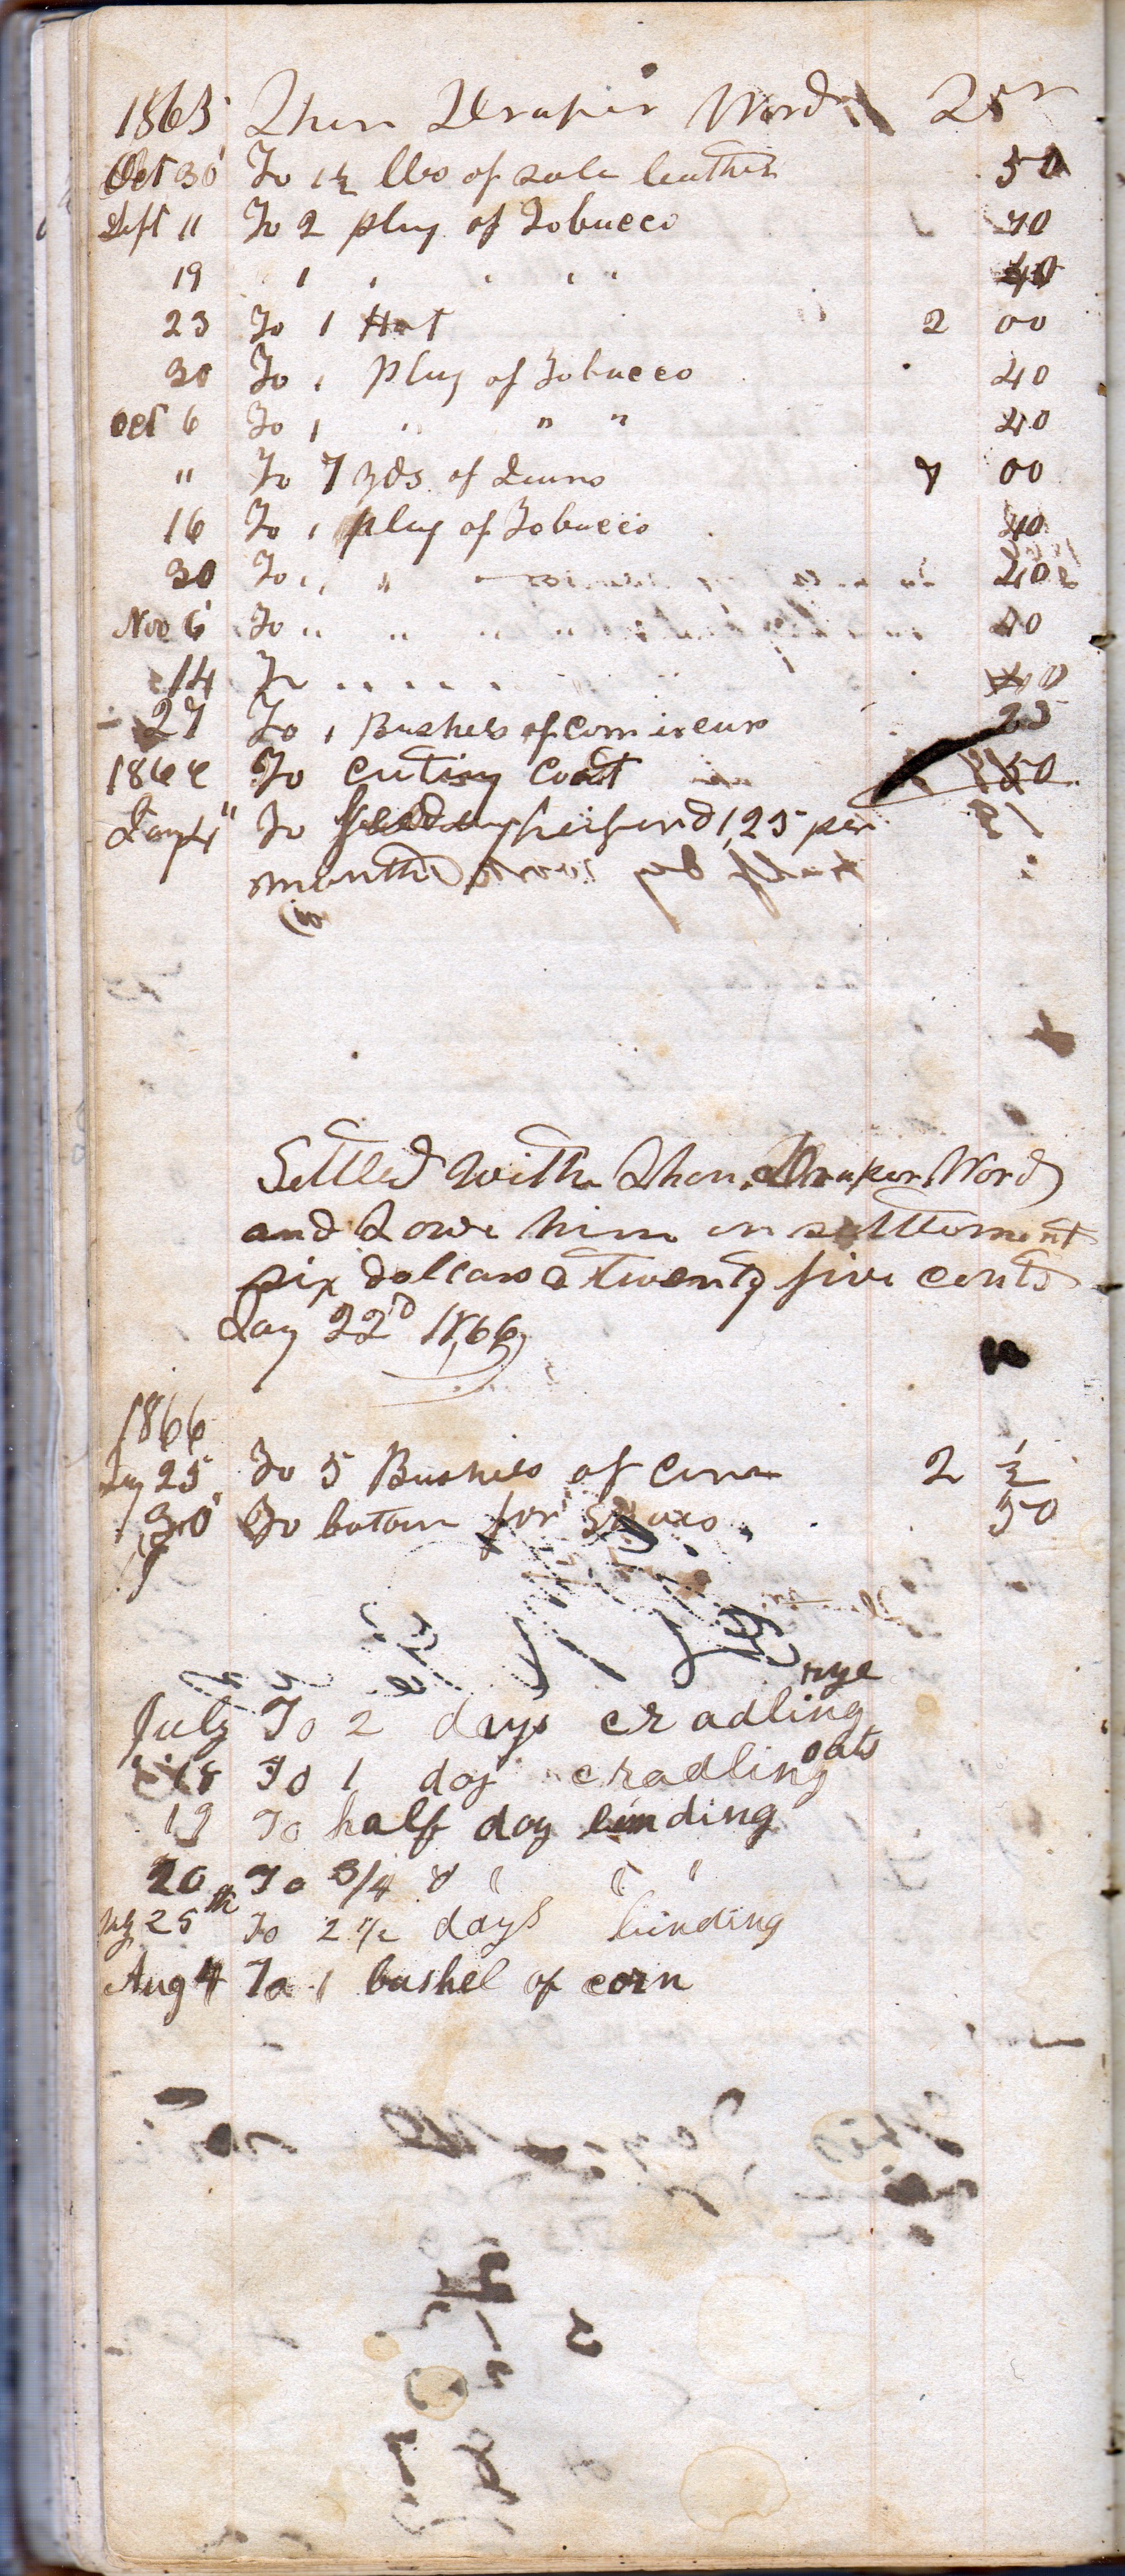 1865 Thon Draper Word Dr
Oct 30 To 1½ lbs of sole leather 50
Sept 11 To 2 plug of Tobacco 70
19 1 " " " " 40
23 To 1 Hat 2 00
30 To 1 Plug of Tobacco 40
Oct 6 To 1 " " " 40
" To 7 yds of Jeans 7 00
16 To 1 plug of Tobacco 40
30 To 1 " 40
Nov 6 To " " " " 40
14 To " " " " 40
27 To 1 Bushels of corn in ears 25
1866 To cuting coat 50
Jany 4" To heiferd 1,25 per
month
Settled with Thon. Draper Word
and I owe him on settlement
six dollars & twenty five cents
Jay 22d 1866
1866
Jay 25 To 5 Bushels of corn 2 ½
30 To botom for 50
rye
July To 2 days cradling
oats
18 To 1 day cradling
19 To half day binding
20 To 3/4 " "
25th To 2 ½ days binding
Aug 4 To 1 bushel of corn